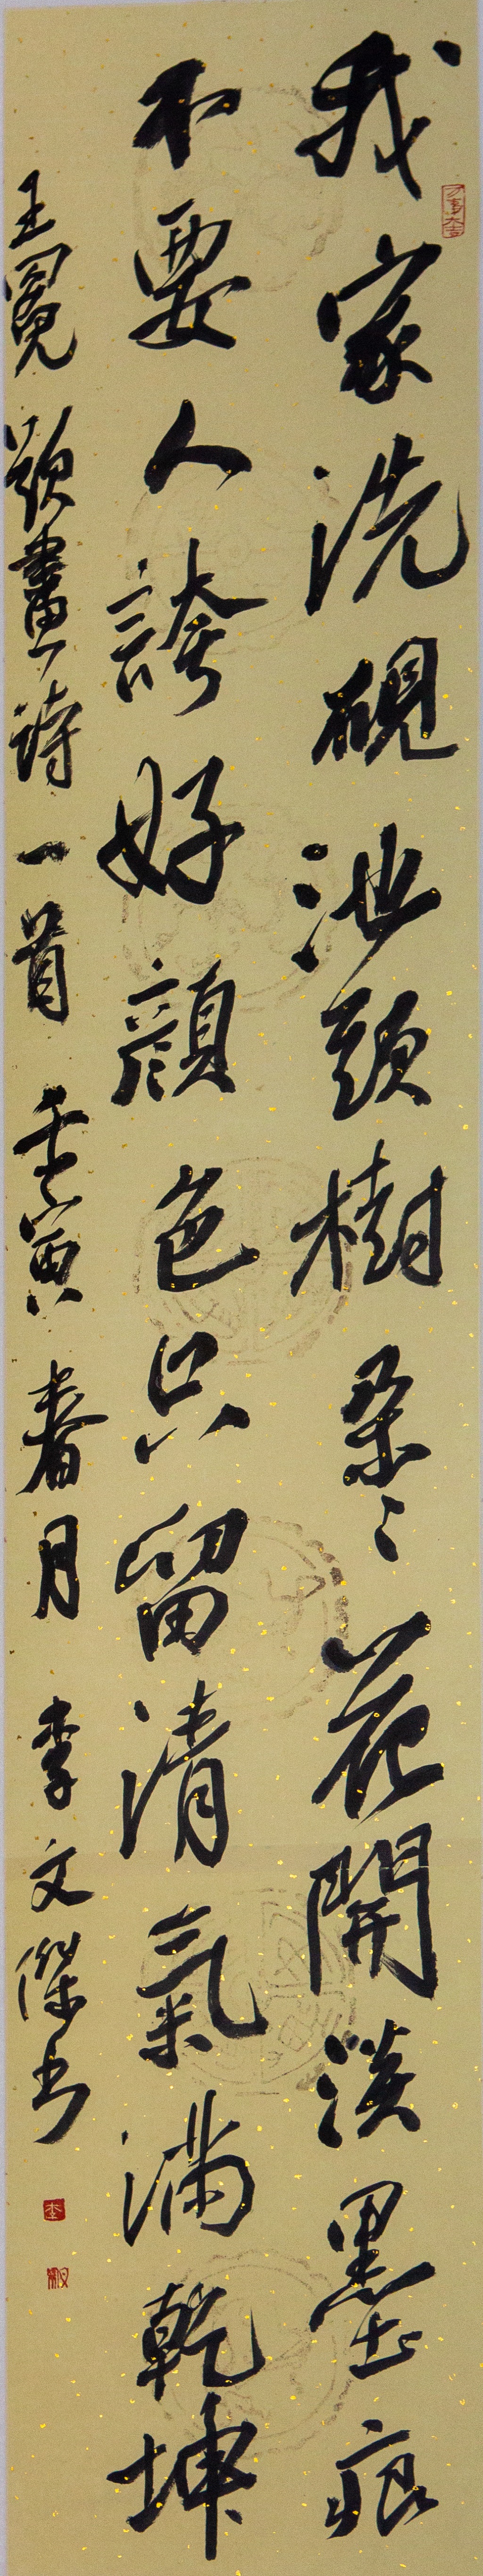 我家洗硯池頭樹朵〻花開淡墨痕
不要人誇好顏色只留清氣滿乾坤
王冕題畫詩一首 壬寅春月 李文傑书